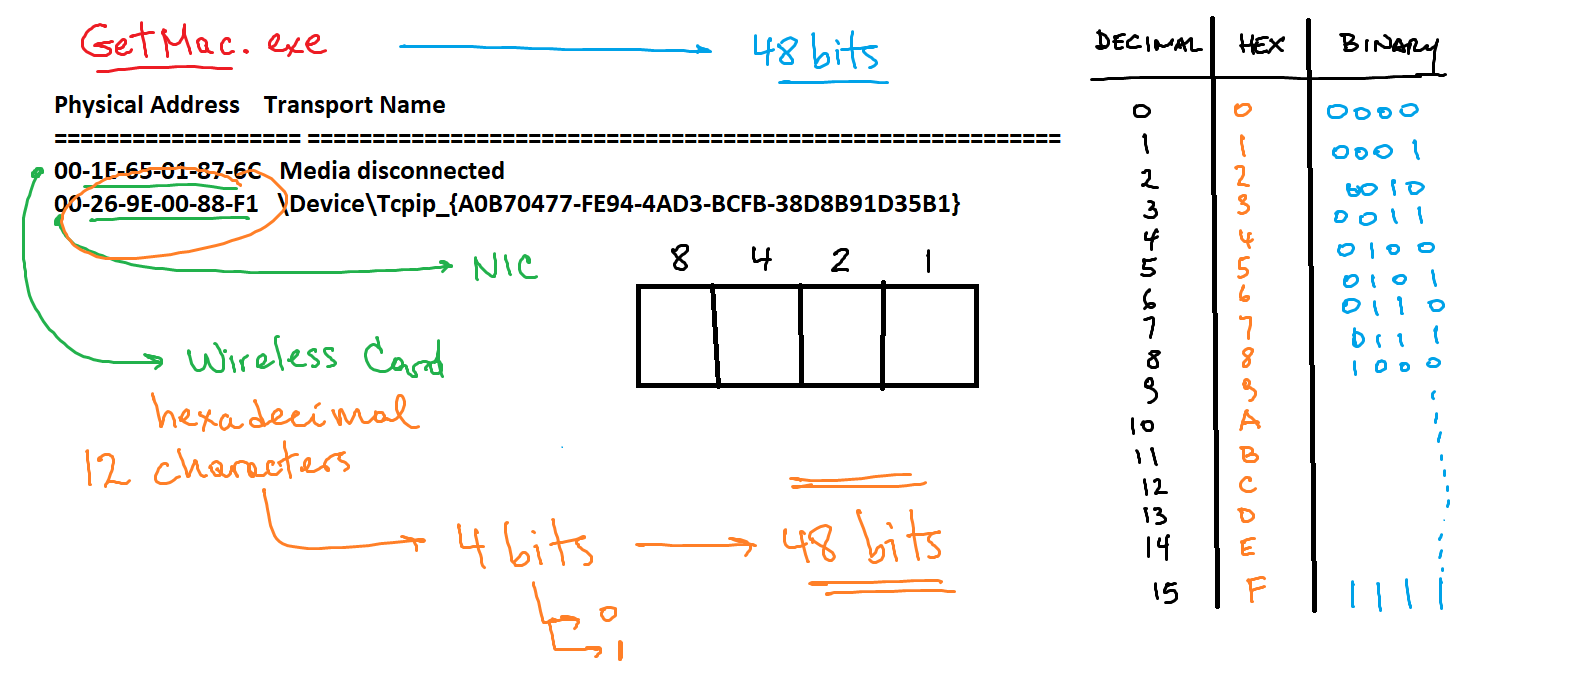 GetMac.exe 48 bits
Physical Address Transport Name
=================== ==========================================================
00-1F-65-01-87-6C Media disconnected
00-26-9E-00-88-F1 \Device\Tcpip_{A0B70477-FE94-4AD3-BCFB-38D8B91D35B1}
NIC
8 4 2 1
Wireless Card
hexadecimal
12 characters
4 bits 48 bits
0
1
DECIMAL HEX BINARY
0 0 0000
1 1 0001
2 2 0010
3 3 0011
4 4 0100
5 5 0101
6 6 0110
7 7 0111
8 8 1000
9 9
10 A
11 B
12 C
13 D
14 E
15 F 1111